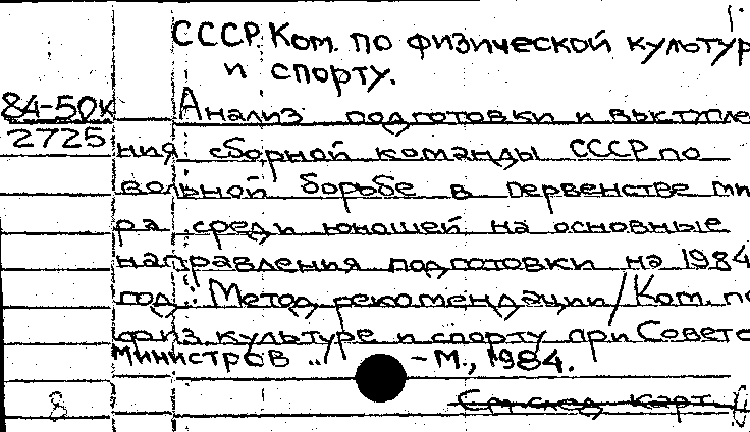 СССР. Ком. по физической культур
и спорту.
84-50к
2725
Анализ подготовки и выступле
ния сборной команды СССР по
вольной борьбе в первенстве ми
ра среди юношей на основные
направления подготовки на 1984
год : Метод. рекомендации / Ком. по
физ. культуре и спорту при Совете
Министров .. / - М., 1984.
8
См. след. карт.